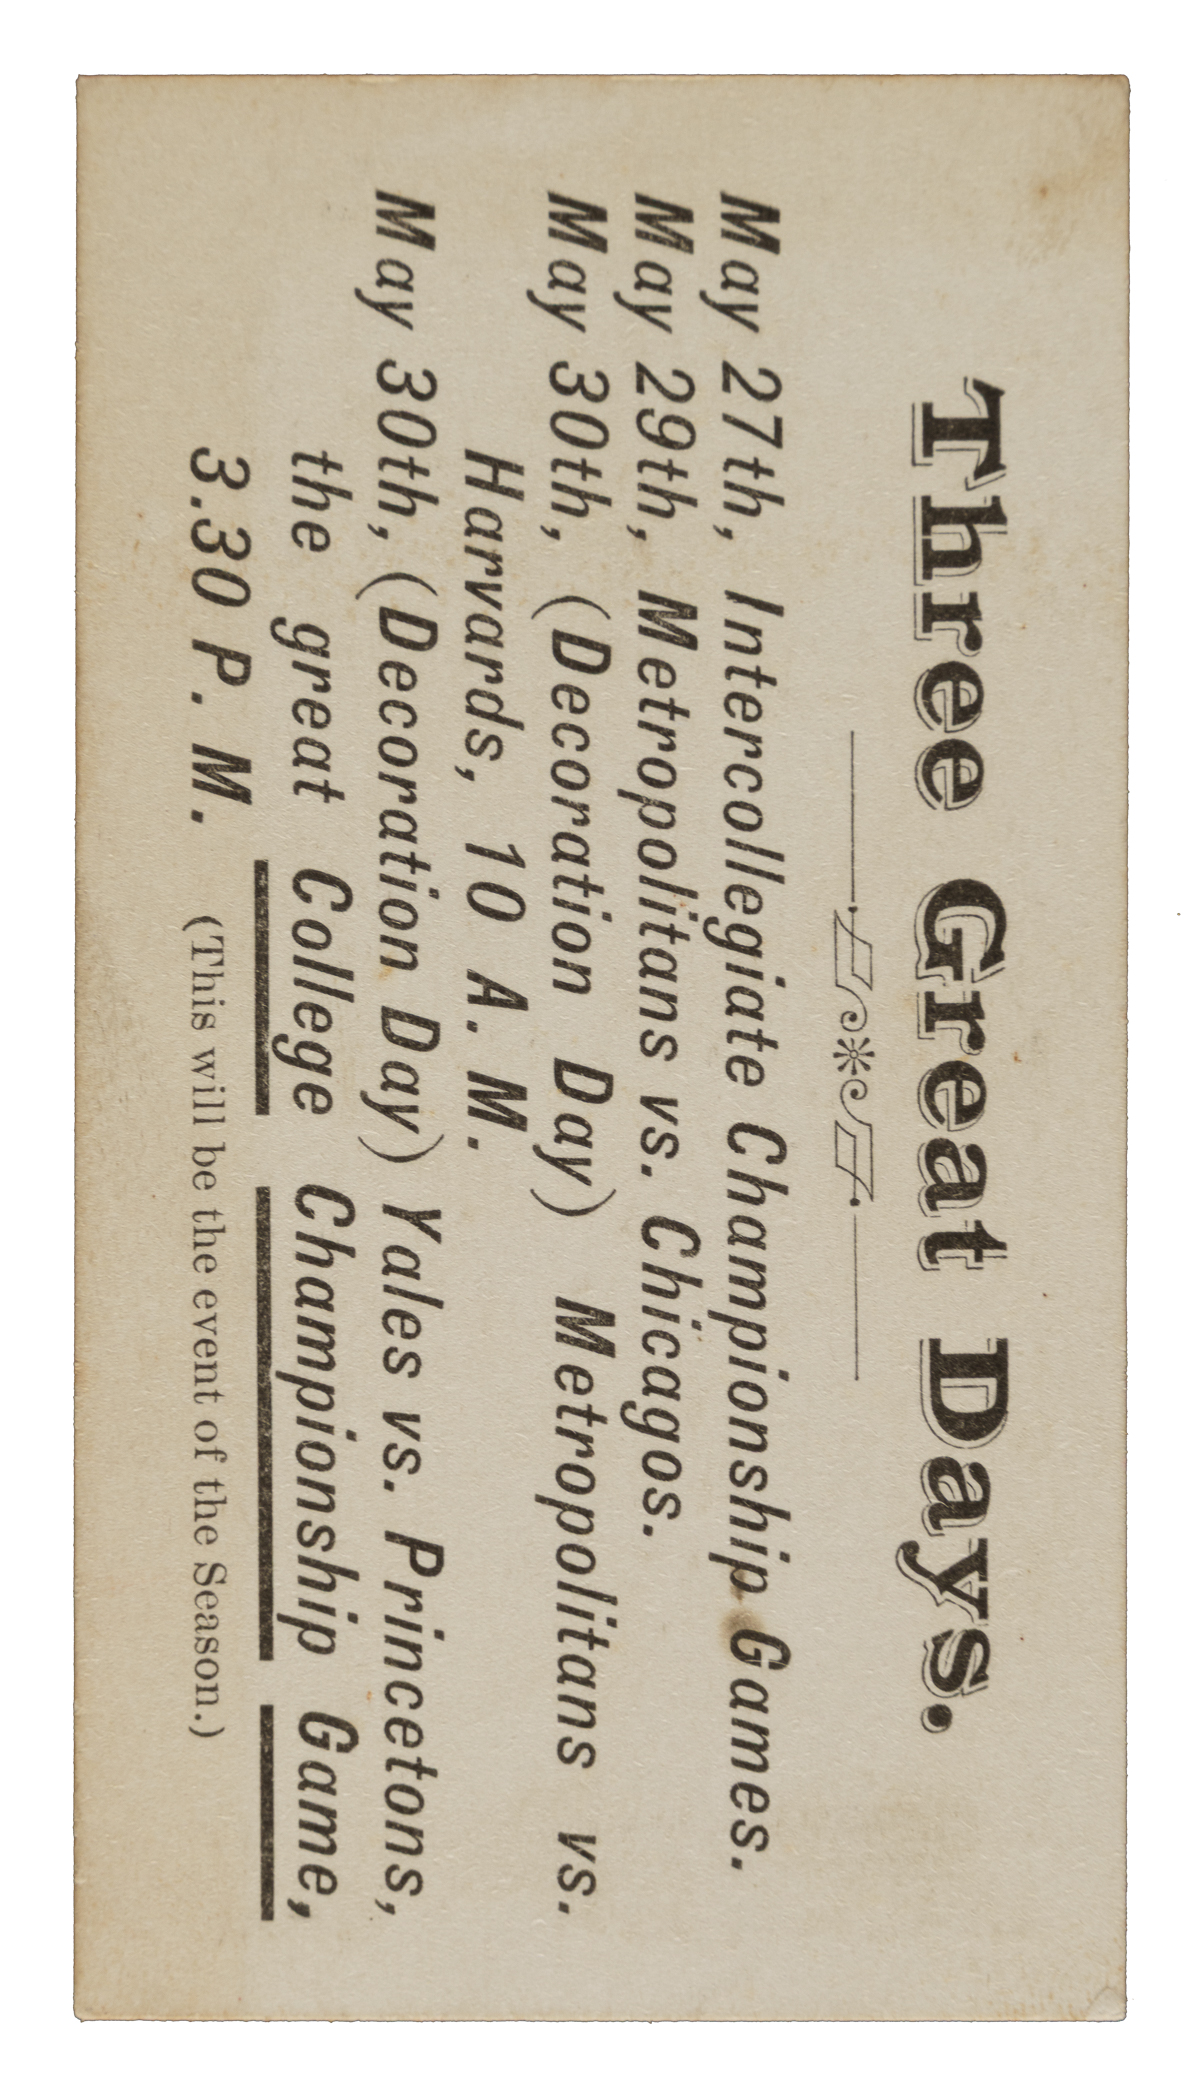 Three Great Days.
May 27th, Intercollegiate Championship Games.
May 29th, Metropolitans vs. Chicagos.
May 30th, (Decoration Day) Metropolitans vs.
Harvards, 10 A. M.
May 30th, (Decoration Day) Yales vs. Princetons,
the great College Championship Game,
3.30 P. M. (This will be the event of the Season.)